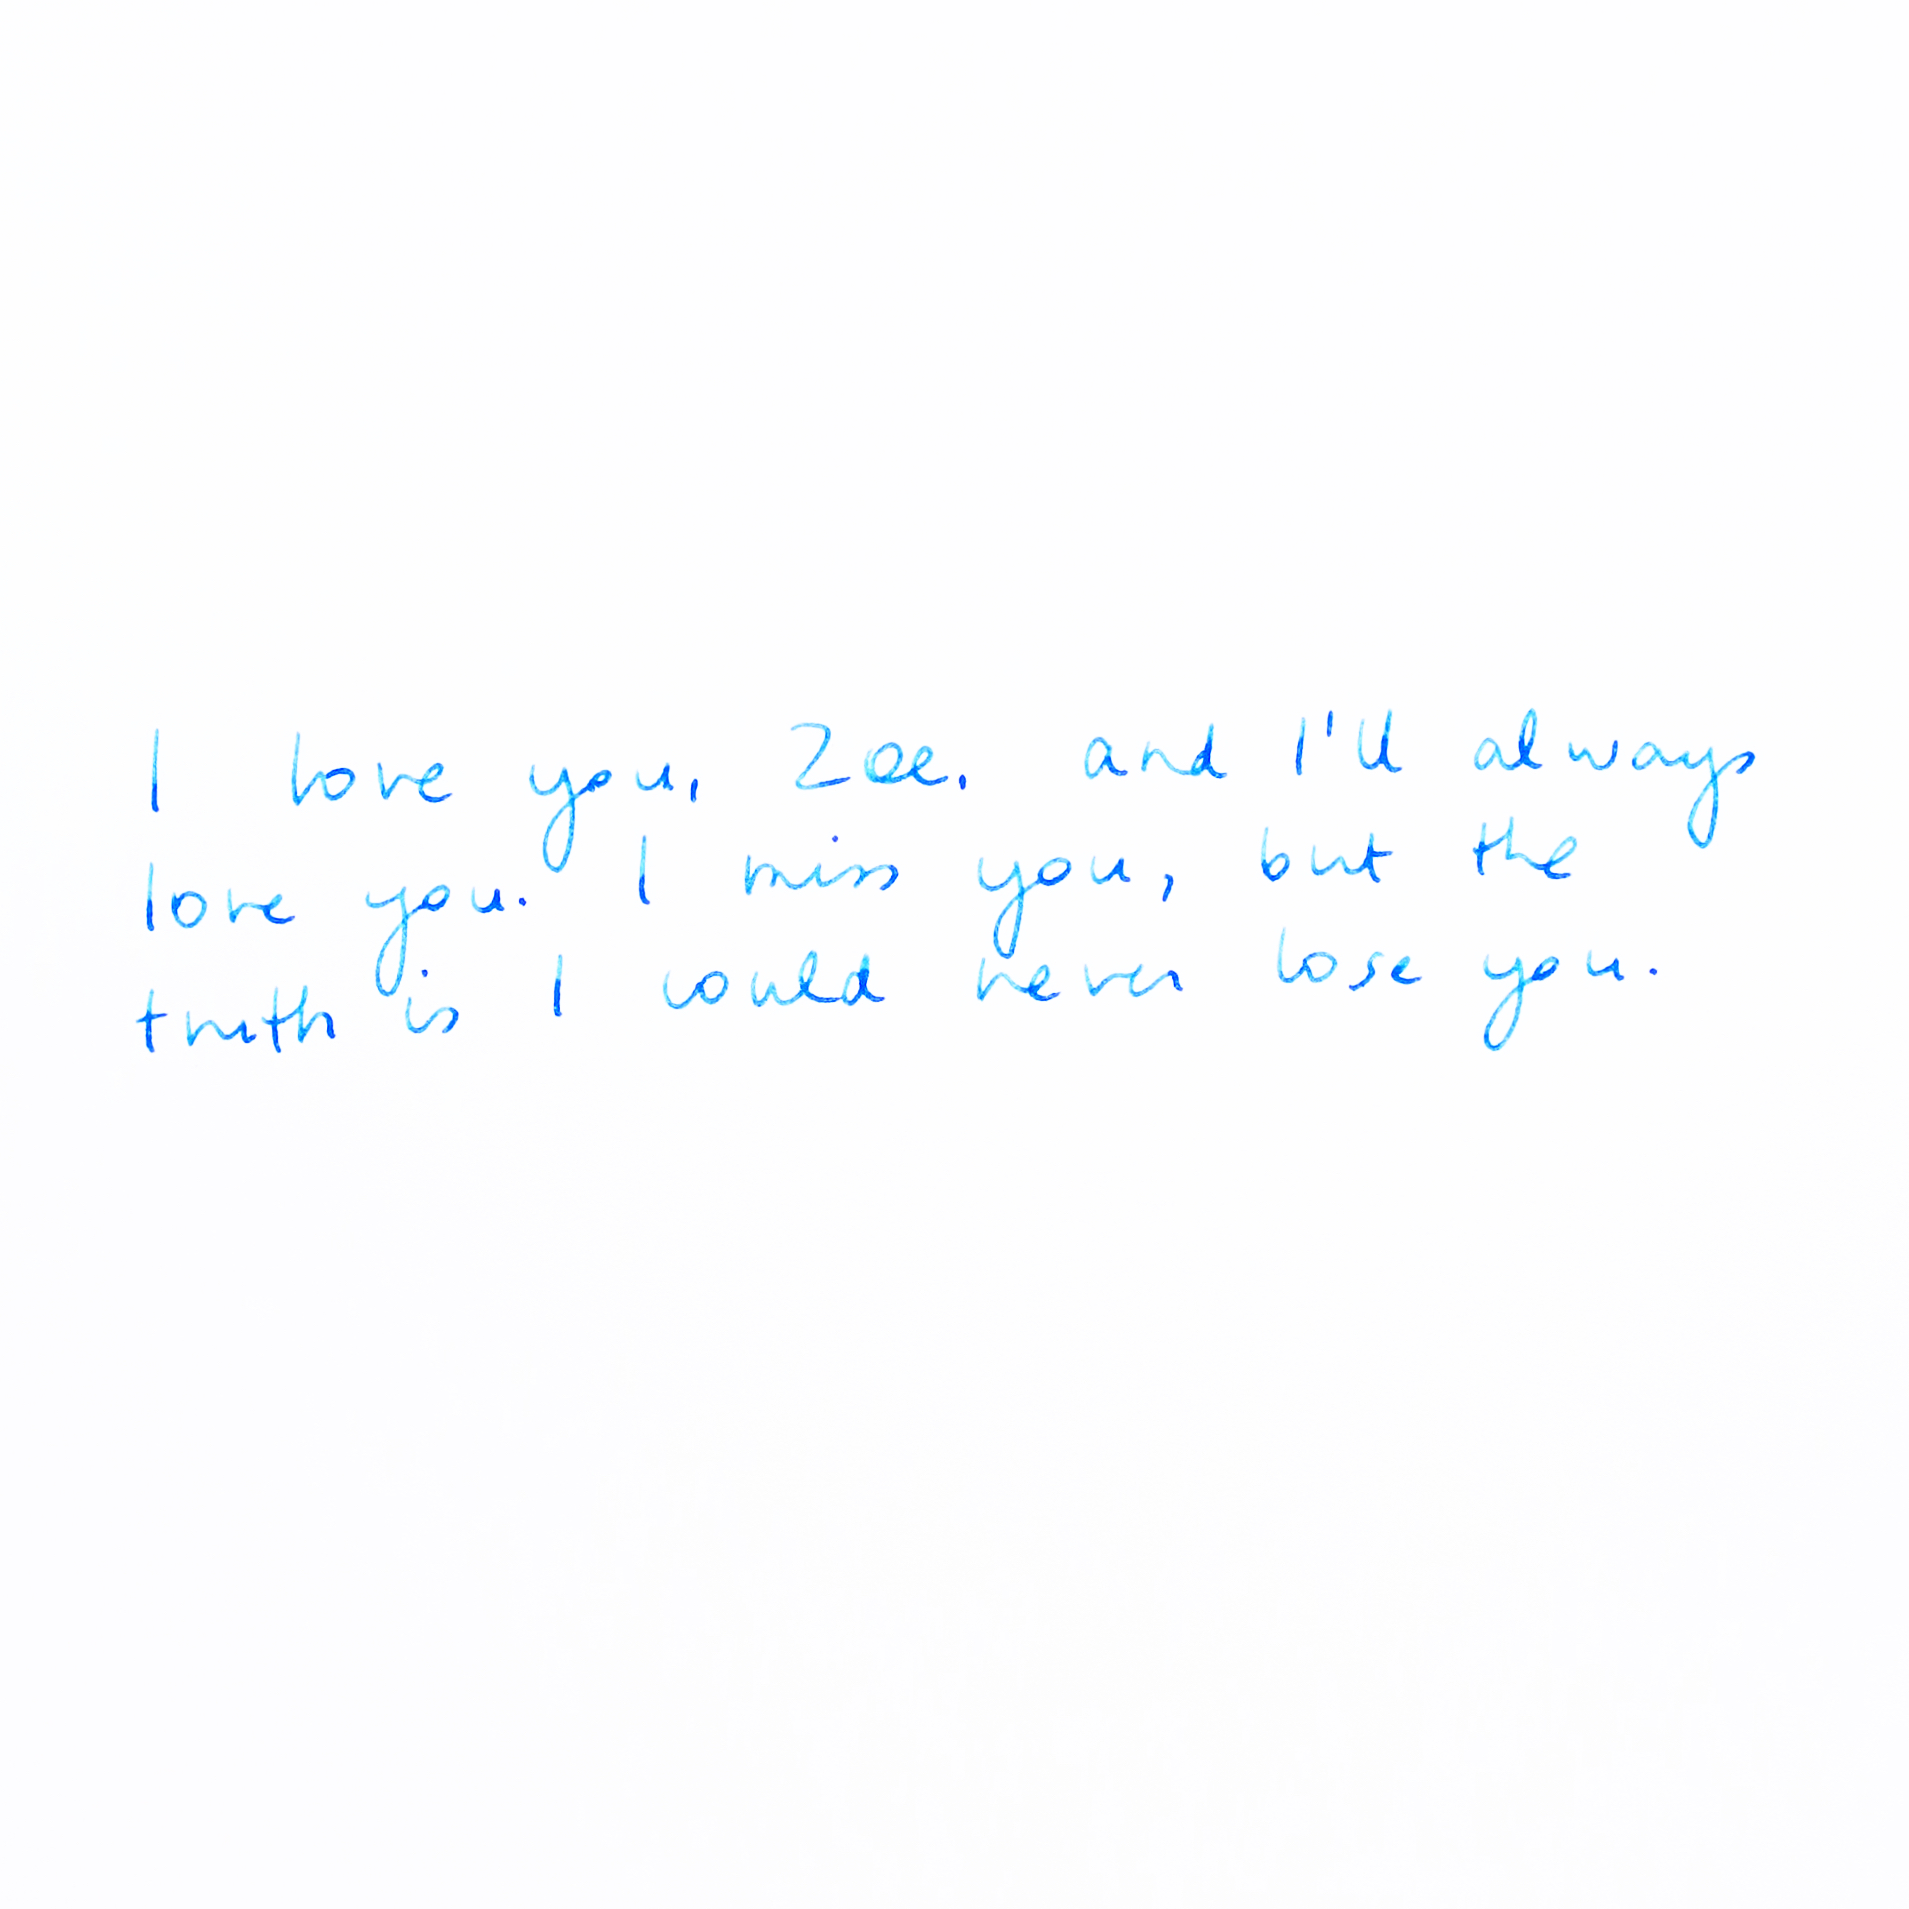 I love you, Zoe. and I'll always
love you. I miss you, but the
truth is I could never lose you.